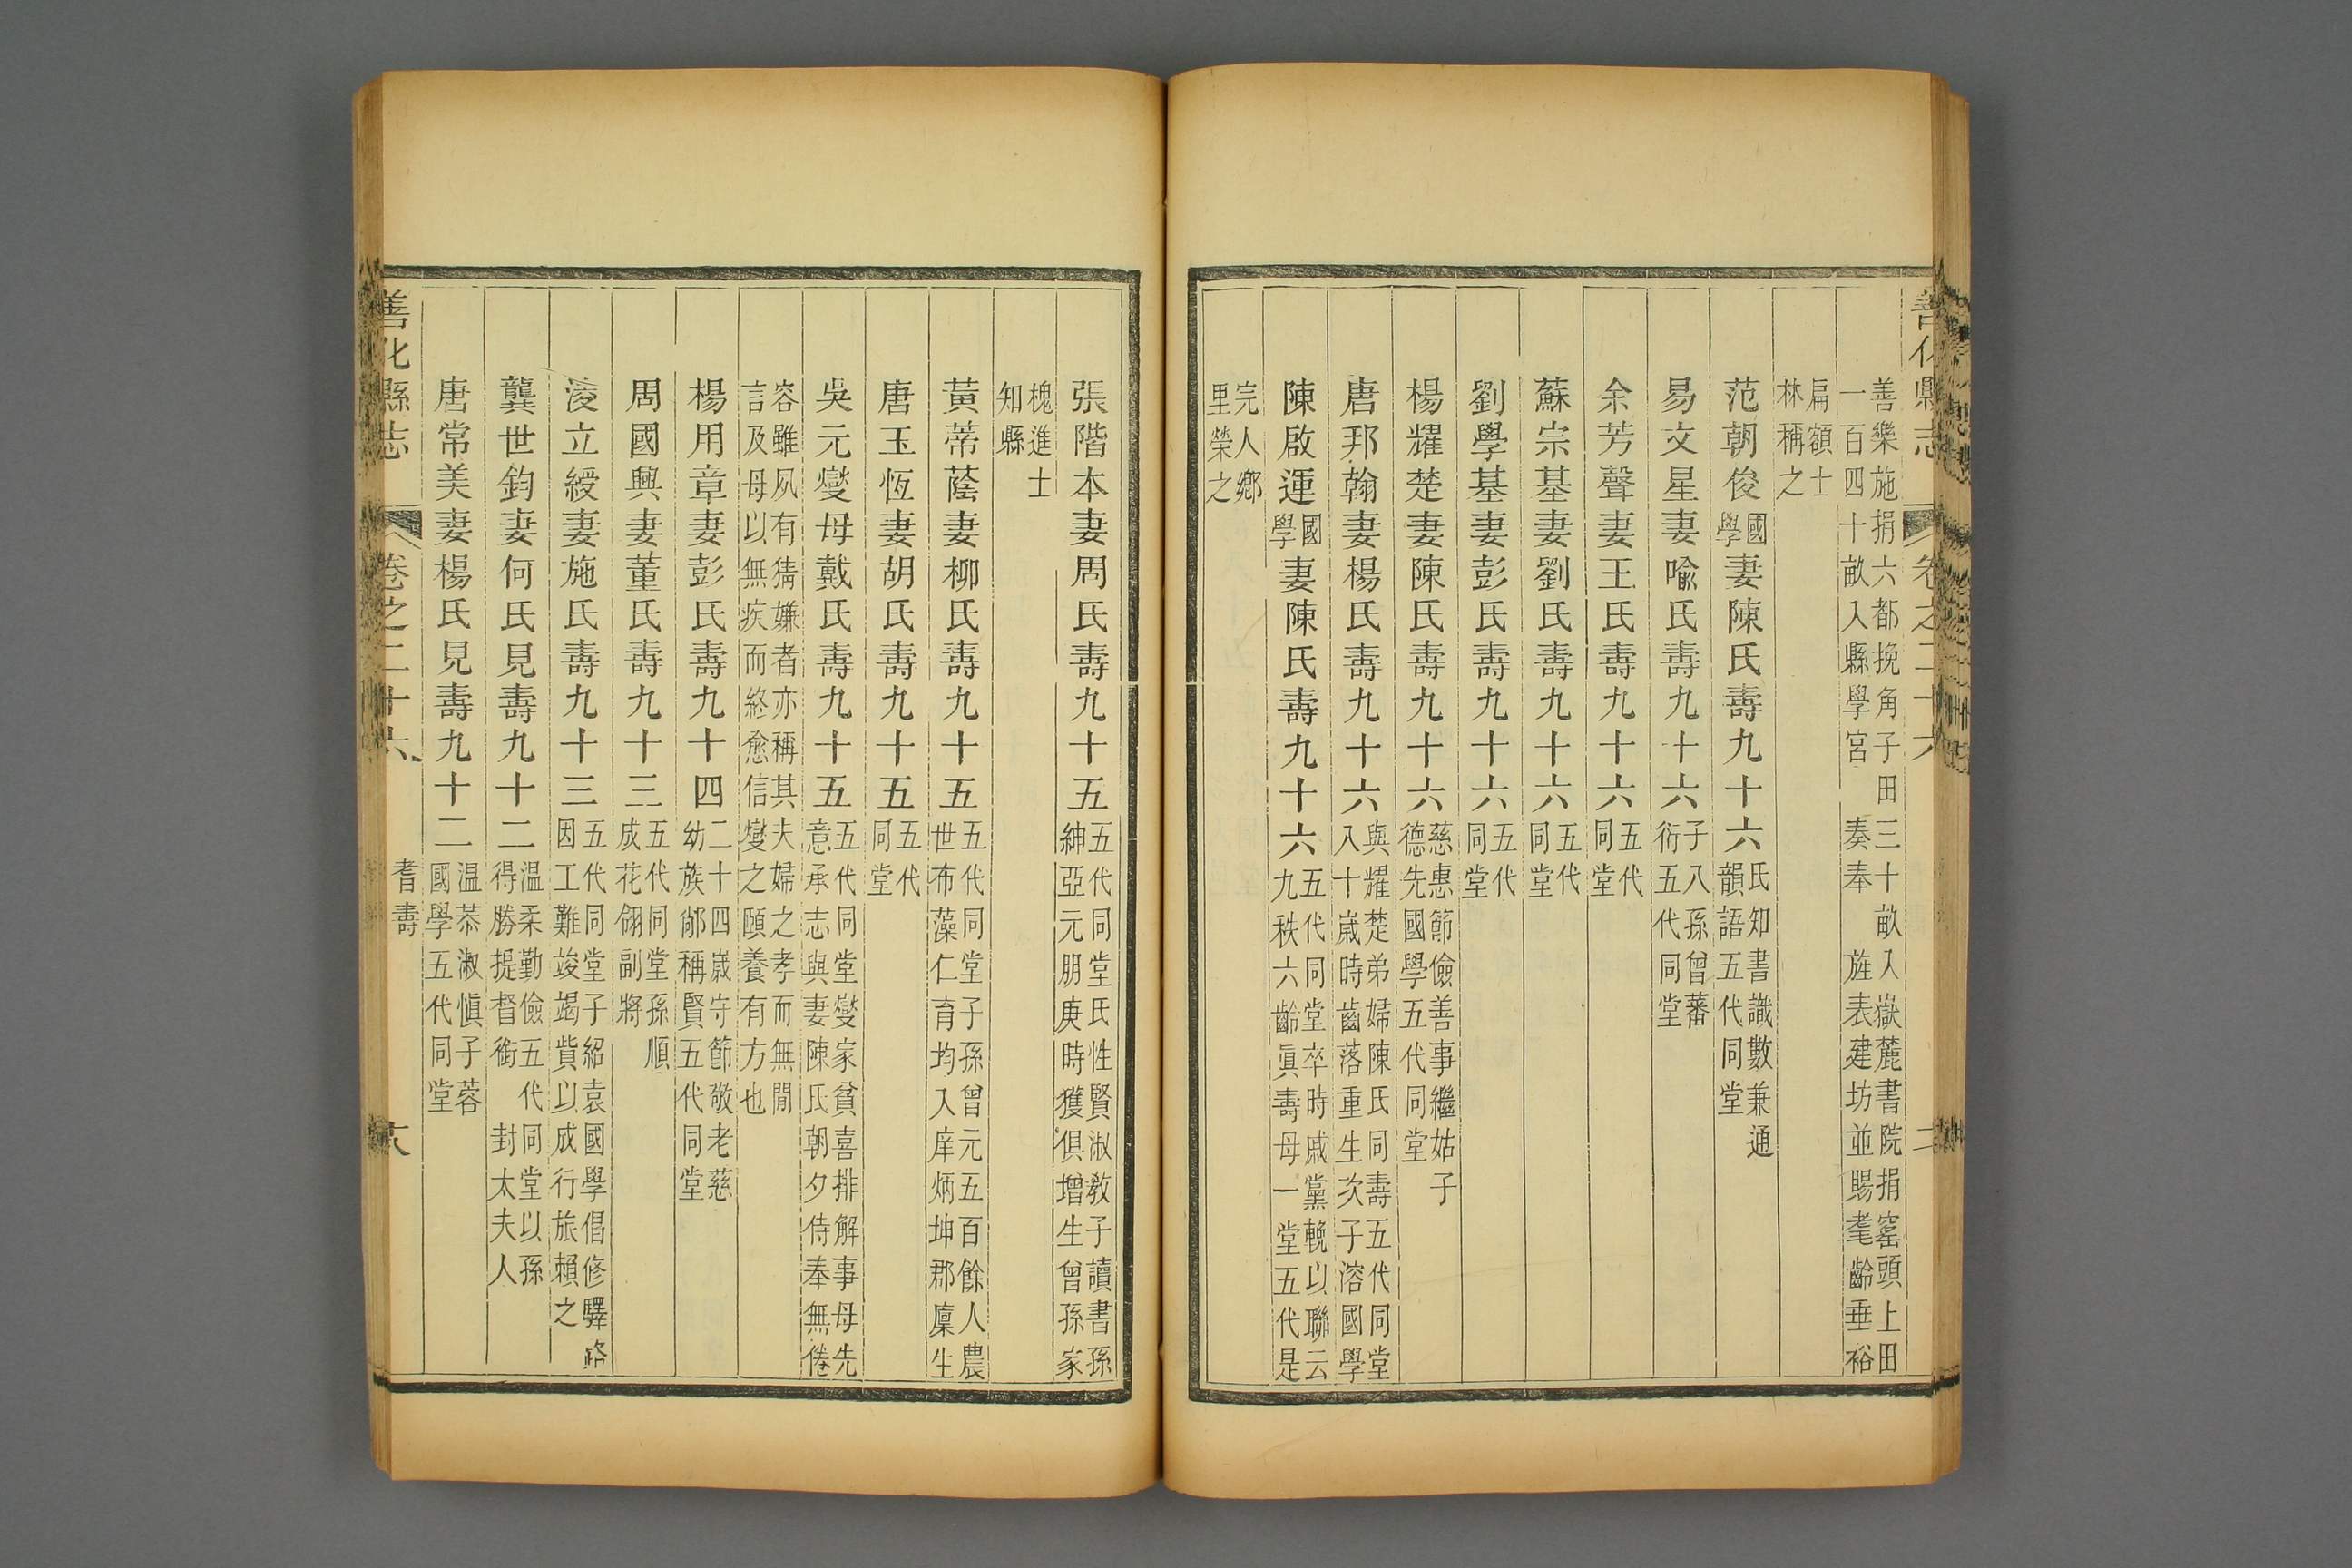 善化縣志 卷之二十六
善樂施捐六都挽角子田三十畝入嶽麓書院捐窰頭上田
一百四十畝入縣學宮 奏奉 旌表建坊並賜耄齡垂裕
扁額士
林稱之
范朝俊國學妻陳氏壽九十六氏知書識數兼通韻語五代同堂
易文星妻喻氏壽九十六子八孫曾蕃衍五代同堂
余芳聲妻王氏壽九十六五代同堂
蘇宗基妻劉氏壽九十六五代同堂
劉學基妻彭氏壽九十六五代同堂
楊耀楚妻陳氏壽九十六慈惠節儉善事繼姑子德先國學五代同堂
唐邦翰妻楊氏壽九十六與耀楚弟婦陳氏同壽五代同堂入十歲時齒落重生次子溶國學
陳啟運妻陳氏壽九十六五代同堂卒時戚黨輓以聯云九秩六齡眞壽母一堂五代是
完人鄉
里榮之
張階本妻周氏壽九十五五代同堂氏性賢淑教子讀書孫紳亞元朋庚時獲俱增生曾孫家
槐進士
知縣
黃蒂蔭妻柳氏壽九十五五代同堂子孫曾元五百餘人農世布藻仁育均入庠炳坤郡廩生
唐玉恆妻胡氏壽九十五五代同堂
吳元燮母戴氏壽九十五五代同堂燮家貧喜排解事母先意承志與妻陳氏朝夕侍奉無倦
容雖夙有猜嫌者亦稱其夫婦之孝而無間
言及母以無疾而終愈信燮之頤養有方也
楊用章妻彭氏壽九十四二十四歲守節敬老慈幼族鄰稱賢五代同堂
周國興妻董氏壽九十三五代同堂孫順成花翎副將
淩立綬妻施氏壽九十三五代同堂子紹袁國學倡修驛路因工難竣竭貲以成行旅賴之
龔世鈞妻何氏見壽九十二温柔勤儉五代同堂以孫得勝提督銜 封太夫人
唐常美妻楊氏見壽九十二温恭淑愼子蓉國學五代同堂
善化縣志 卷之二十六 耆壽